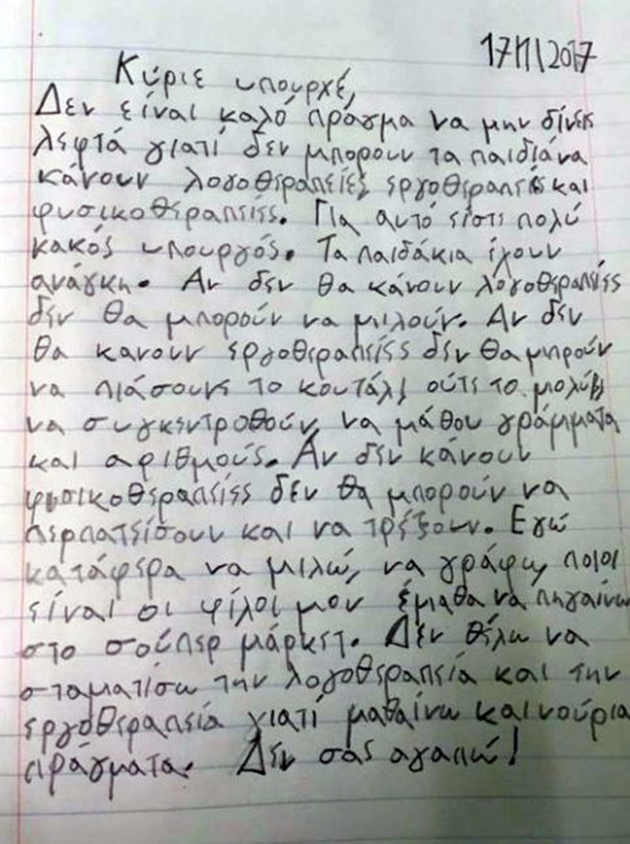 17/11/2017
Κύριε υπουρχέ,
Δεν είναι καλό πράγμα να μην δίνεις
λεφτά γιατί δεν μπορουν τα παιδιά να
κάνουν λογοθεραπείες, εργοθεραπείες και
φυσικοθεραπείες. Για αυτό είστι πολύ
κακός υπουργός. Τα παιδάκια έχουν
ανάγκη. Αν δεν θα κάνουν λογοθεραπείες
δεν θα μπορούν να μιλούν. Αν δεν
θα κανουν εργοθεραπείες δεν θα μπρούν
να πιάσουνε το κουτάλι, ούτε το μολύβι,
να συγκεντροθούν, να μάθου γράμματα
και αριθμούς. Αν δεν κάνουν
φυσικοθεραπείες δεν θα μπορούν να
περπατείσουν και να τρέξουν. Εγώ
κατάφερα να μιλώ, να γράφω, ποιοι
είναι οι φίλοι μου έμαθα να πηγαίνω
στο σούπερ μάρκετ. Δεν θέλω να
σταματίσω την λογοθεραπεία και την
εργοθεραπεία γιατί μαθαίνω καινούρια
πράγματα. Δεν σας αγαπώ!